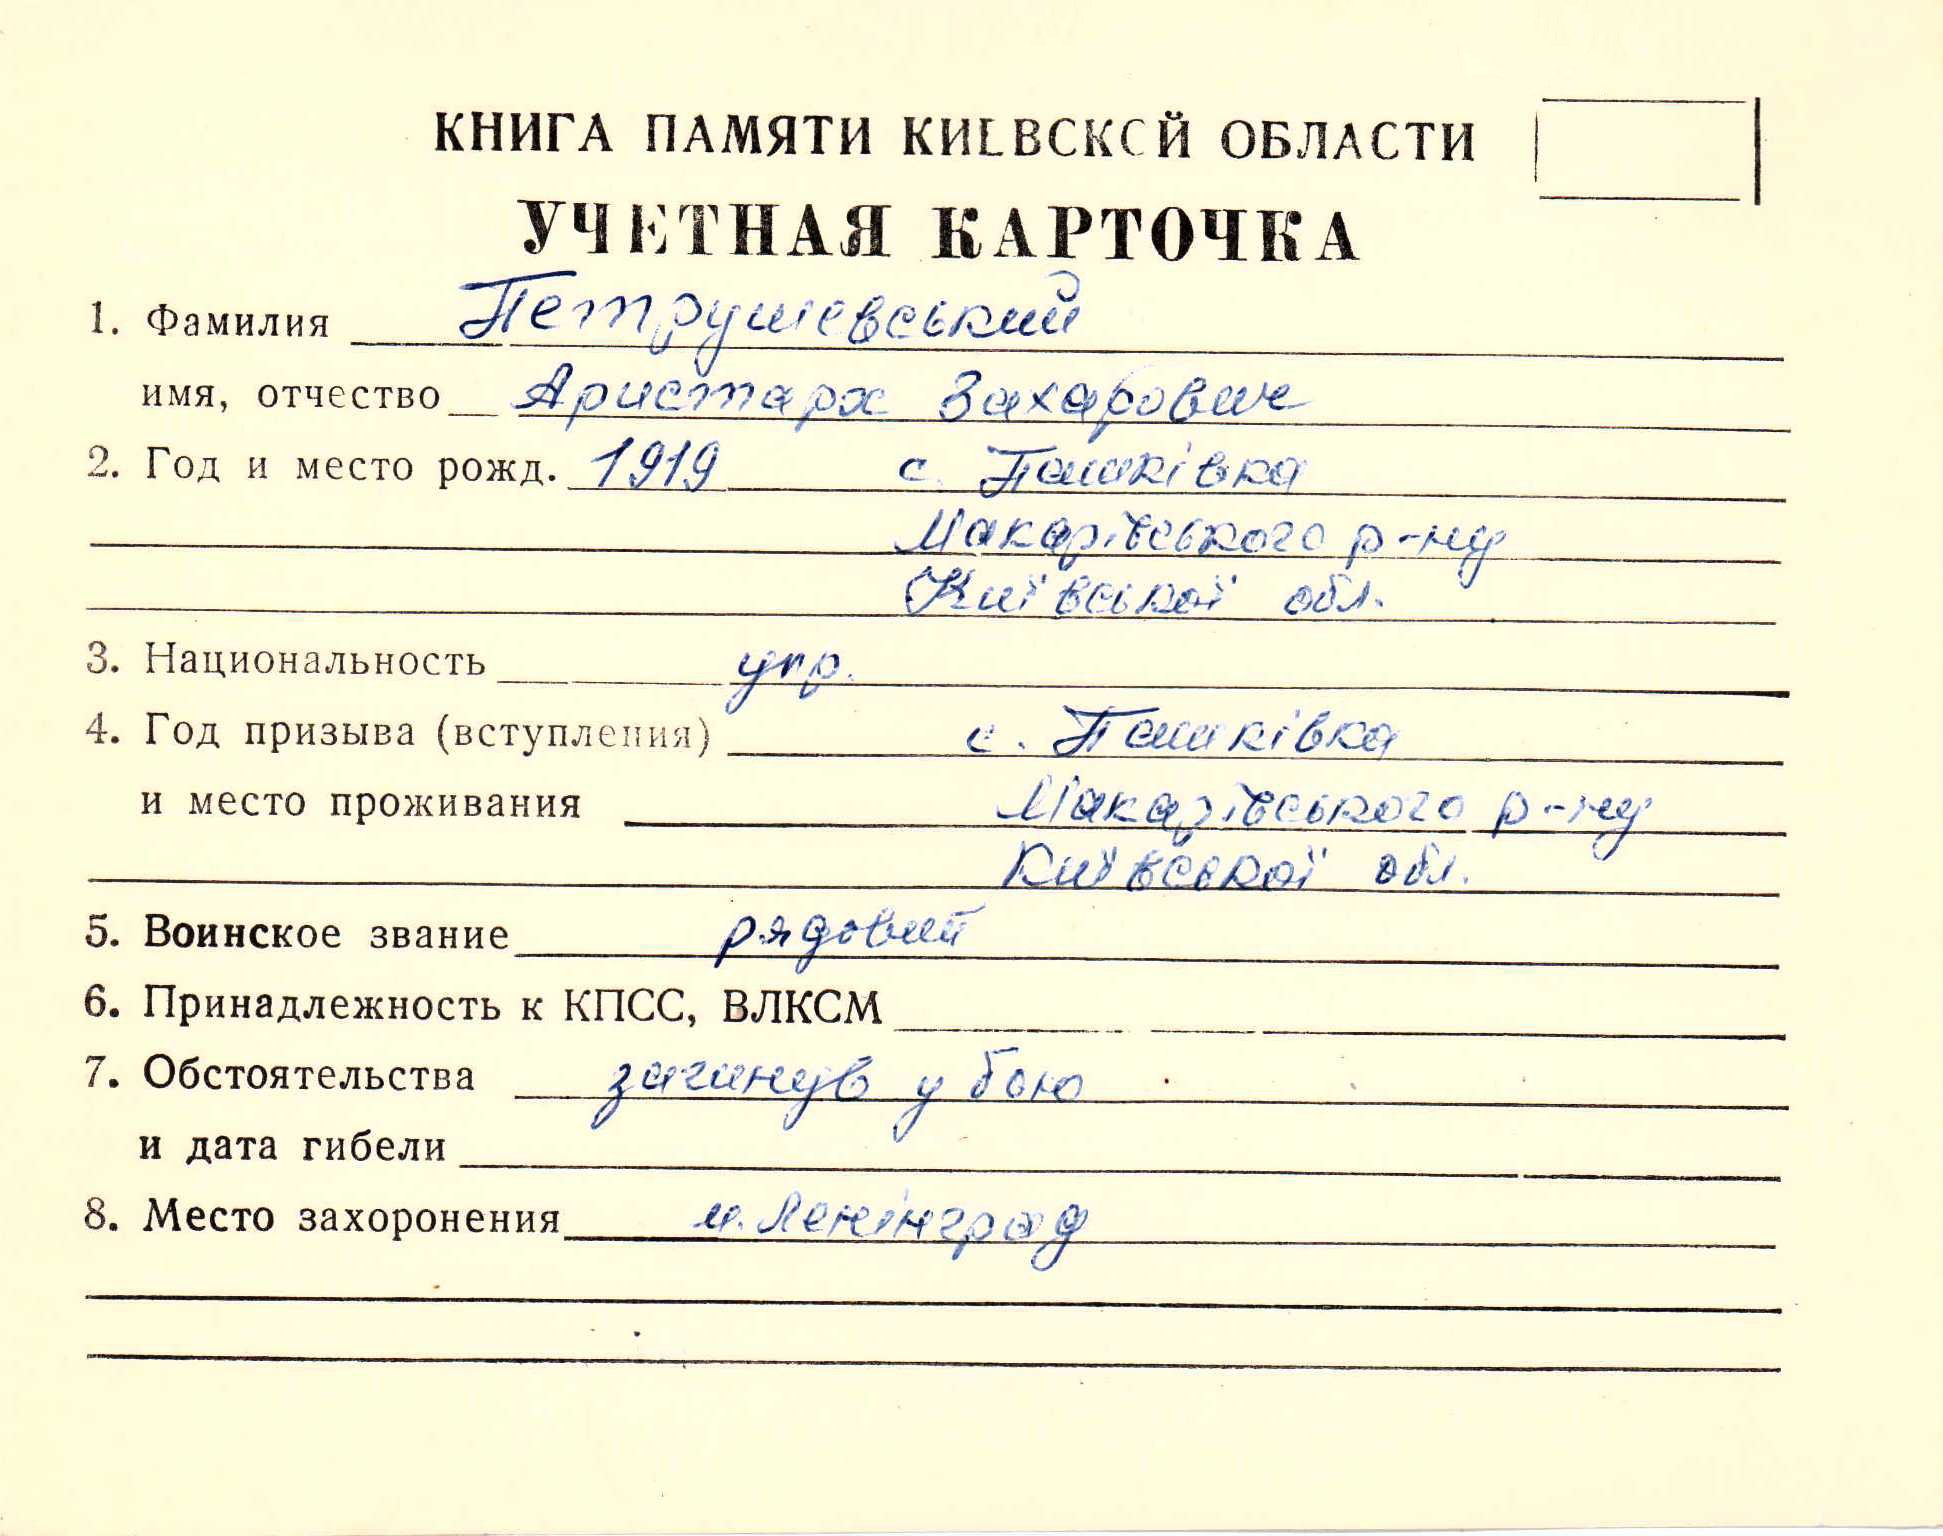 КНИГА ПАМЯТИ КИЕВСКОЙ ОБЛАСТИ
УЧЕТНАЯ КАРТОЧКА
1. Фамилия Петрушевський
имя, отчество Аристарх Захарович
2. Год и место рожд. 1919 с. Пашківка
Макарівського р-ну
Київської обл.
3. Национальность укр.
4. Год призыва (вступления) с. Пашківка
и место проживания Макарівського р-ну
Київської обл.
5. Воинское звание рядовий
6. Принадлежность к КПСС, ВЛКСМ
7. Обстоятельства загинув у бою
и дата гибели
8. Место захоронения м. Ленінград